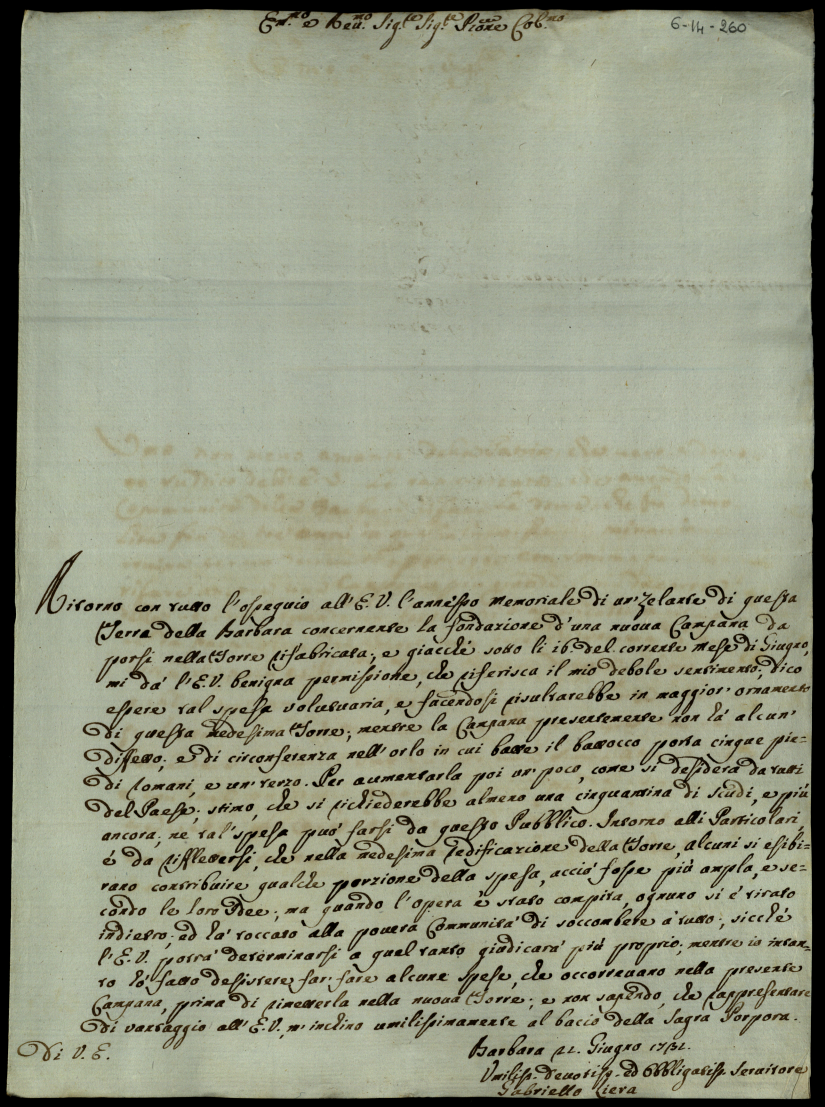 Em.mo e Reu.mo Sig.re Sig.re Prone Col.mo
6-14-260
Ritorno con tutto l'ossequio all'E.V. l'annesso Memoriale di un'Zelante di questa
Terra della Barbara concernente la fondazione d'una nuoua Campana da
porsi nella Torre rifabricata; e giacché sotto li 16 del corrente mese di Giugno,
mi dà l'E.V. benigna permissione, che riferisca il mio debole sentimento, dico
essere tal'spesa voluttuaria, e facendosi risultarebbe in maggior'ornamento
di questa medesima Torre; mentre la Campana presentemente non hà alcun'
diffetto; e di circonferenza nell'orlo in cui batte il battocco porta cinque pie-
di romani, e un'terzo. Per aumentarla poi un'poco, come si desidera da tutti
del Paese; stimo, che si richiederebbe almeno una cinquantina di scudi, e più
ancora; ne tal'spesa può farsi da questo Pubblico. Intorno alli Particolari
è da riflettersi, che nella medesima redificazione della Torre, alcuni si esibi-
rano contribuire qualche porzione della spesa, acciò fosse più ampla, e se-
condo le loro Idee; ma quando l'opera è stata compita, ognuno si è tirato
indietro; ed hà toccato alla pouera Communità di soccombere à tutto; sicché
l'E.V. potrà determinarsi a quel tanto giudicarà più proprio; mentre io intan-
to hò fatto desistere far'fare alcune spese, che occorreuano nella presente
Campana, prima di rimetterla nella nuoua Torre; e non sapendo, che rappresentare
di vantaggio all'E.V., m'inchino umilissimamente al bacio della Sagra Porpora.
Di V.E.
Barbara 22. Giugno 1732.
Umiliss. Deuotiss. ed Obbligatiss. Seruitore
Gabriello Riera